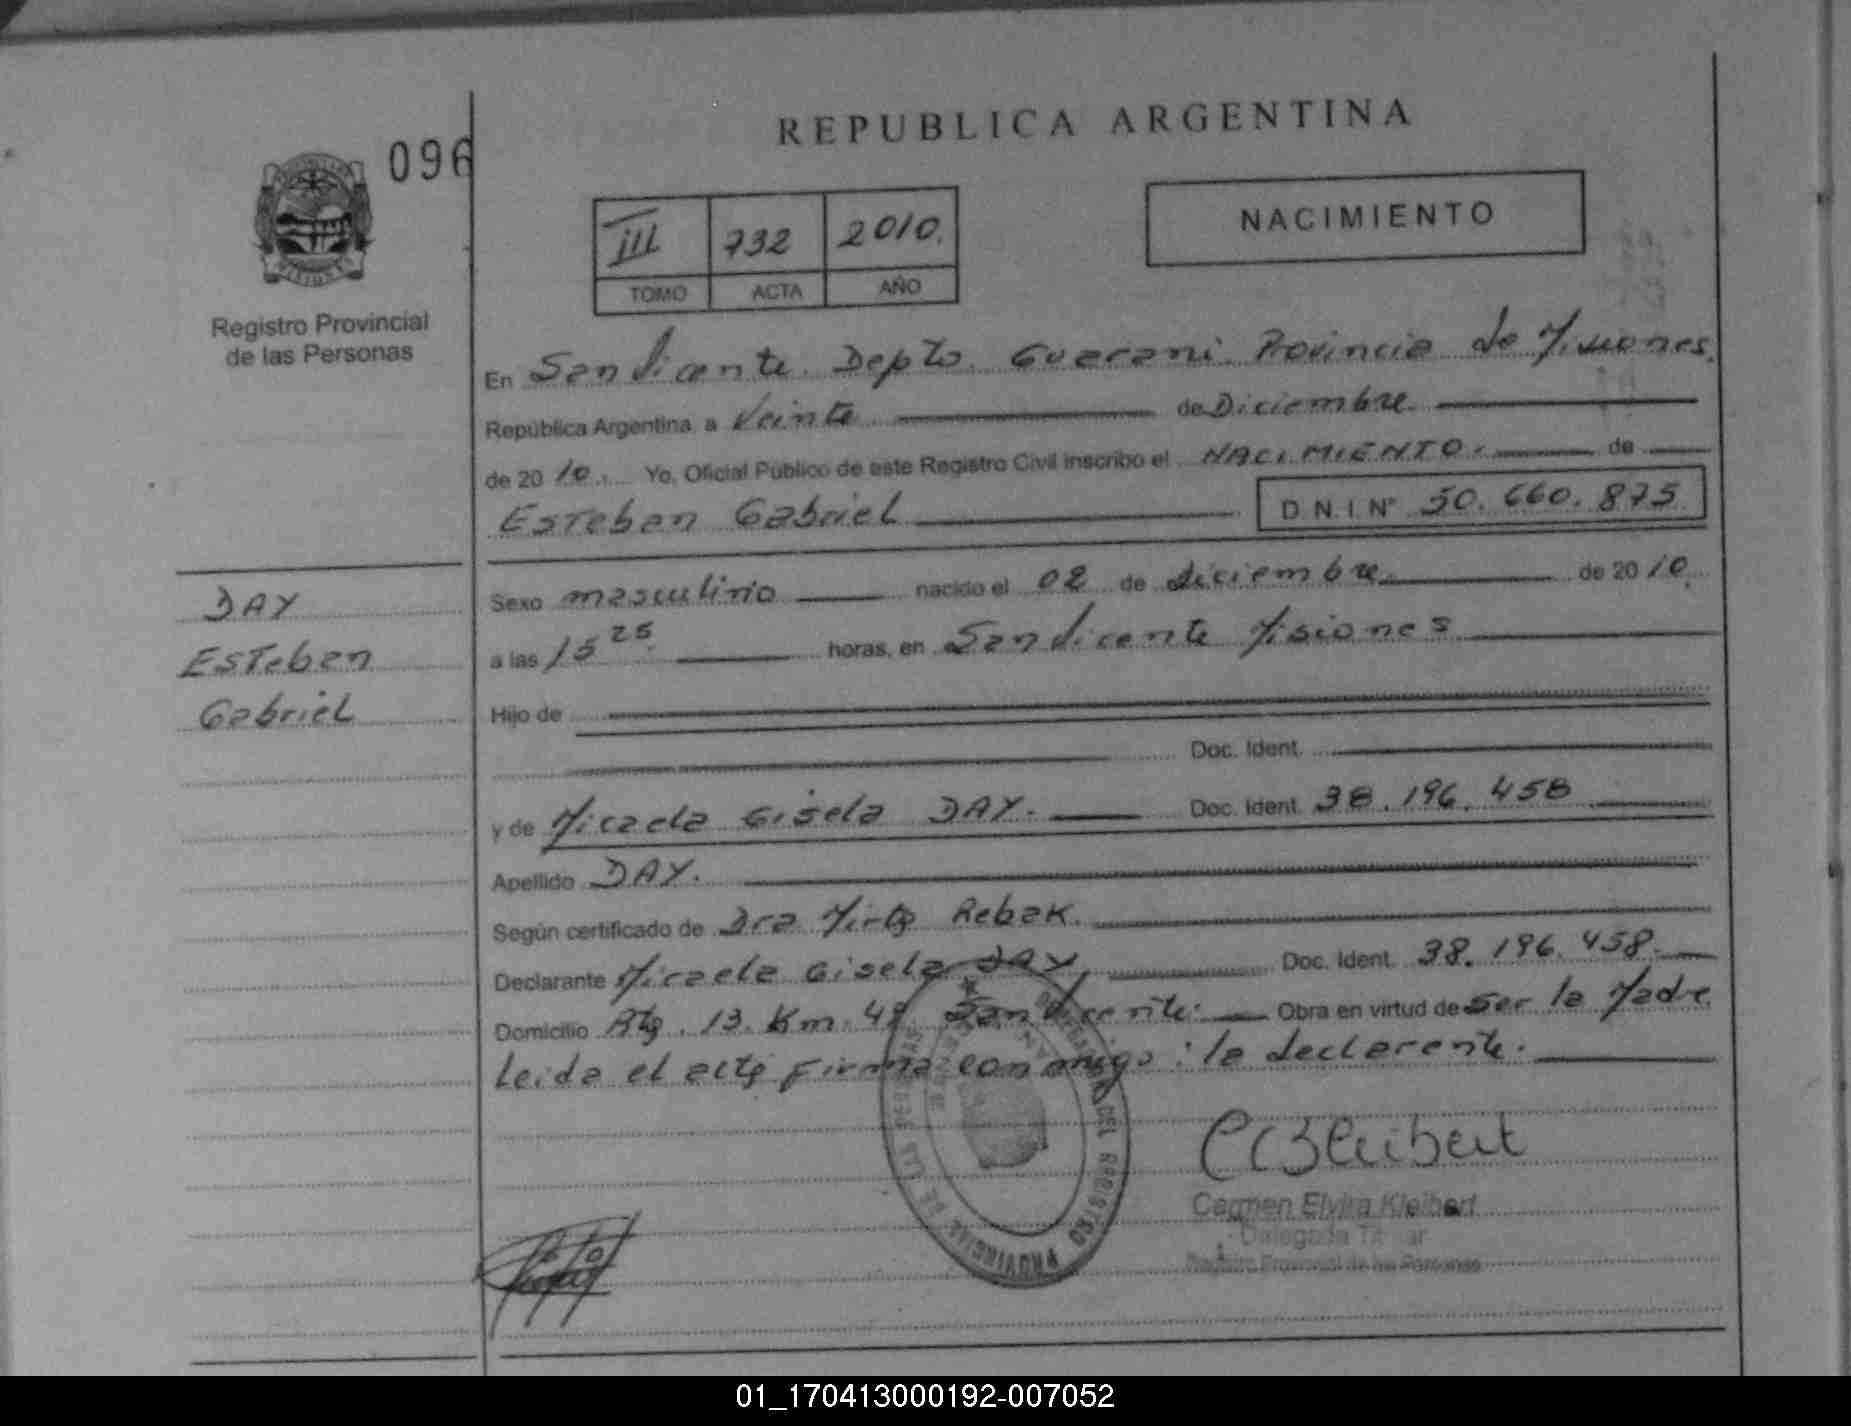 REPUBLICA ARGENTINA
096
III 732 2010.
TOMO ACTA AÑO
NACIMIENTO
Registro Provincial
de las Personas
En San Vicente. Depto. Guarani. Provincia de Misiones.
República Argentina, a Veinte de Diciembre.
de 2010. Yo, Oficial Público de este Registro Civil inscribo el NACIMIENTO. de
Esteban Gabriel D.N.I. Nº 50.660.875
DAY
Esteban
Gabriel
Sexo masculino nacido el 02 de diciembre de 2010.
a las 15 25 horas, en San Vicente Misiones
Hijo de
Doc. Ident.
y de Micaela Gisela DAY. Doc. Ident. 38.196.458
Apellido DAY.
Según certificado de Dra Mirta Rebak.
Declarante Micaela Gisela DAY, Doc. Ident. 38.196.458.
Domicilio Rta. 13. Km. San Vicente. Obra en virtud de Ser la Madre.
Leida el acta firma conmigo: la declarante.
DEL REGISTRO PROVINCIAL DE LAS
Carmen Elvira Kleibert
Delegada Titular
Registro Provincial de las Personas
01_170413000192-007052